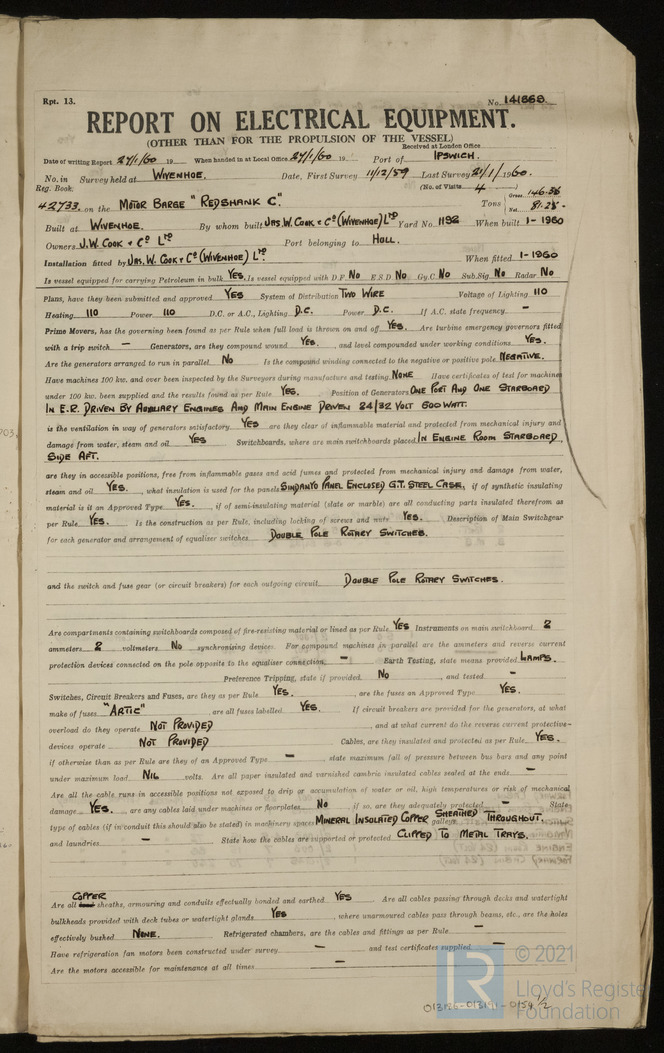 Rpt. 13.
No. 141868.
REPORT ON ELECTRICAL EQUIPMENT.
(OTHER THAN FOR THE PROPULSION OF THE VESSEL)
Received at London Office
Date of writing Report 27/1/60 19 When handed in at Local Office 27/1/60 19 Port of IPSWICH.
No. in Survey held at WIVENHOE. Date, First Survey 11/12/59 Last Survey 21/1/1960.
Reg. Book. (No. of Visits 4)
42733. on the MOTOR BARGE "REDSHANK C". Tons Gross 146.36 Net 81.28
Built at WIVENHOE. By whom built JAS. W. COOK & CO (WIVENHOE) LTD Yard No. 1192 When built 1-1960
Owners J. W. COOK & CO LTD Port belonging to HULL.
Installation fitted by JAS. W. COOK & CO (WIVENHOE) LTD. When fitted 1-1960
Is vessel equipped for carrying Petroleum in bulk YES. Is vessel equipped with D.F. NO E.S.D. NO Gy.C. NO Sub.Sig. NO Radar NO
Plans, have they been submitted and approved YES System of Distribution TWO WIRE Voltage of Lighting 110
Heating 110 Power 110 D.C. or A.C., Lighting D.C. Power D.C. If A.C. state frequency -
Prime Movers, has the governing been found as per Rule when full load is thrown on and off YES. Are turbine emergency governors fitted
with a trip switch - Generators, are they compound wound YES. , and level compounded under working conditions YES.
Are the generators arranged to run in parallel NO Is the compound winding connected to the negative or positive pole NEGATIVE.
Have machines 100 kw. and over been inspected by the Surveyors during manufacture and testing NONE Have certificates of test for machines
under 100 kw. been supplied and the results found as per Rule YES. Position of Generators ONE PORT AND ONE STARBOARD
IN E.R. DRIVEN BY AUXILIARY ENGINES AND MAIN ENGINE DRIVEN 24/32 VOLT 600 WATT.
is the ventilation in way of generators satisfactory YES are they clear of inflammable material and protected from mechanical injury and
damage from water, steam and oil YES Switchboards, where are main switchboards placed IN ENGINE ROOM STARBOARD
SIDE AFT.
are they in accessible positions, free from inflammable gases and acid fumes and protected from mechanical injury and damage from water,
steam and oil YES. , what insulation is used for the panels SINDANYO PANEL ENCLOSED G.T. STEEL CASE, if of synthetic insulating
material is it an Approved Type YES. , if of semi-insulating material (slate or marble) are all conducting parts insulated therefrom as
per Rule YES. Is the construction as per Rule, including locking of screws and nuts YES. Description of Main Switchgear
for each generator and arrangement of equaliser switches DOUBLE POLE ROTARY SWITCHES.
and the switch and fuse gear (or circuit breakers) for each outgoing circuit DOUBLE POLE ROTARY SWITCHES.
Are compartments containing switchboards composed of fire-resisting material or lined as per Rule YES Instruments on main switchboard 2
ammeters 2 voltmeters NO synchronising devices. For compound machines in parallel are the ammeters and reverse current
protection devices connected on the pole opposite to the equaliser connection - Earth Testing, state means provided LAMPS.
Preference Tripping, state if provided NO , and tested -
Switches, Circuit Breakers and Fuses, are they as per Rule YES. , are the fuses an Approved Type YES.
make of fuses "ARTIC" , are all fuses labelled YES. If circuit breakers are provided for the generators, at what
overload do they operate NOT PROVIDED , and at what current do the reverse current protective-
devices operate NOT PROVIDED Cables, are they insulated and protected as per Rule YES.
if otherwise than as per Rule are they of an Approved Type - , state maximum fall of pressure between bus bars and any point
under maximum load NIL volts. Are all paper insulated and varnished cambric insulated cables sealed at the ends -
Are all the cable runs in accessible positions not exposed to drip or accumulation of water or oil, high temperatures or risk of mechanical
damage YES. , are any cables laid under machines or floorplates NO if so, are they adequately protected - State
type of cables (if in conduit this should also be stated) in machinery spaces MINERAL INSULATED COPPER SHEATHED THROUGHOUT. galleys
and laundries - State how the cables are supported or protected CLIPPED TO METAL TRAYS.
COPPER
Are all sheaths, armouring and conduits effectually bonded and earthed YES Are all cables passing through decks and watertight
bulkheads provided with deck tubes or watertight glands YES , where unarmoured cables pass through beams, etc., are the holes
effectively bushed NONE. Refrigerated chambers, are the cables and fittings as per Rule -
Have refrigeration fan motors been constructed under survey - and test certificates supplied -
Are the motors accessible for maintenance at all times -
© 2021
Lloyd's Register
Foundation